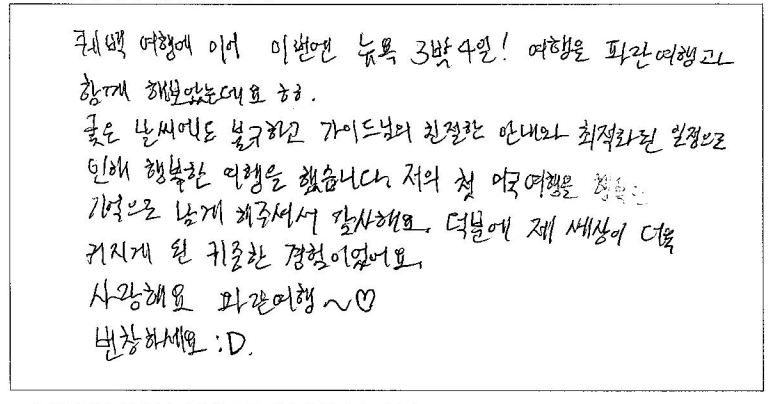 퀘백 여행에 이어 이번엔 뉴욕 3박4일! 여행을 파란여행과
함께 해보았는데요 ㅎㅎ.
궂은 날씨에도 불구하고 가이드님의 친절한 안내와 최적화된 일정으로
인해 행복한 여행을 했습니다. 저의 첫 미국여행을
기억으로 남게 해주셔서 감사해요. 덕분에 제 세상이 더욱
커지게 된 귀중한 경험이었어요.
사랑해요 파란여행~♡
번창하세요 :D.